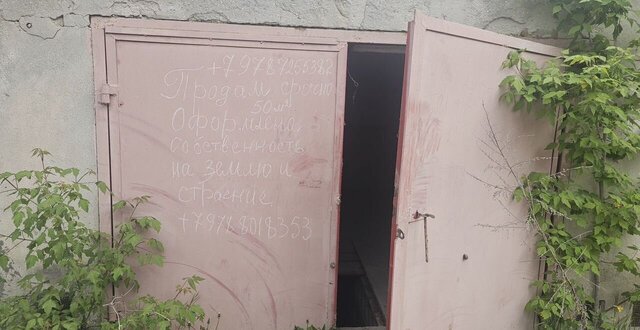 +79787255382
Продам срочно
50м²
Оформлена
собственность
на землю и
строение
+79768018353